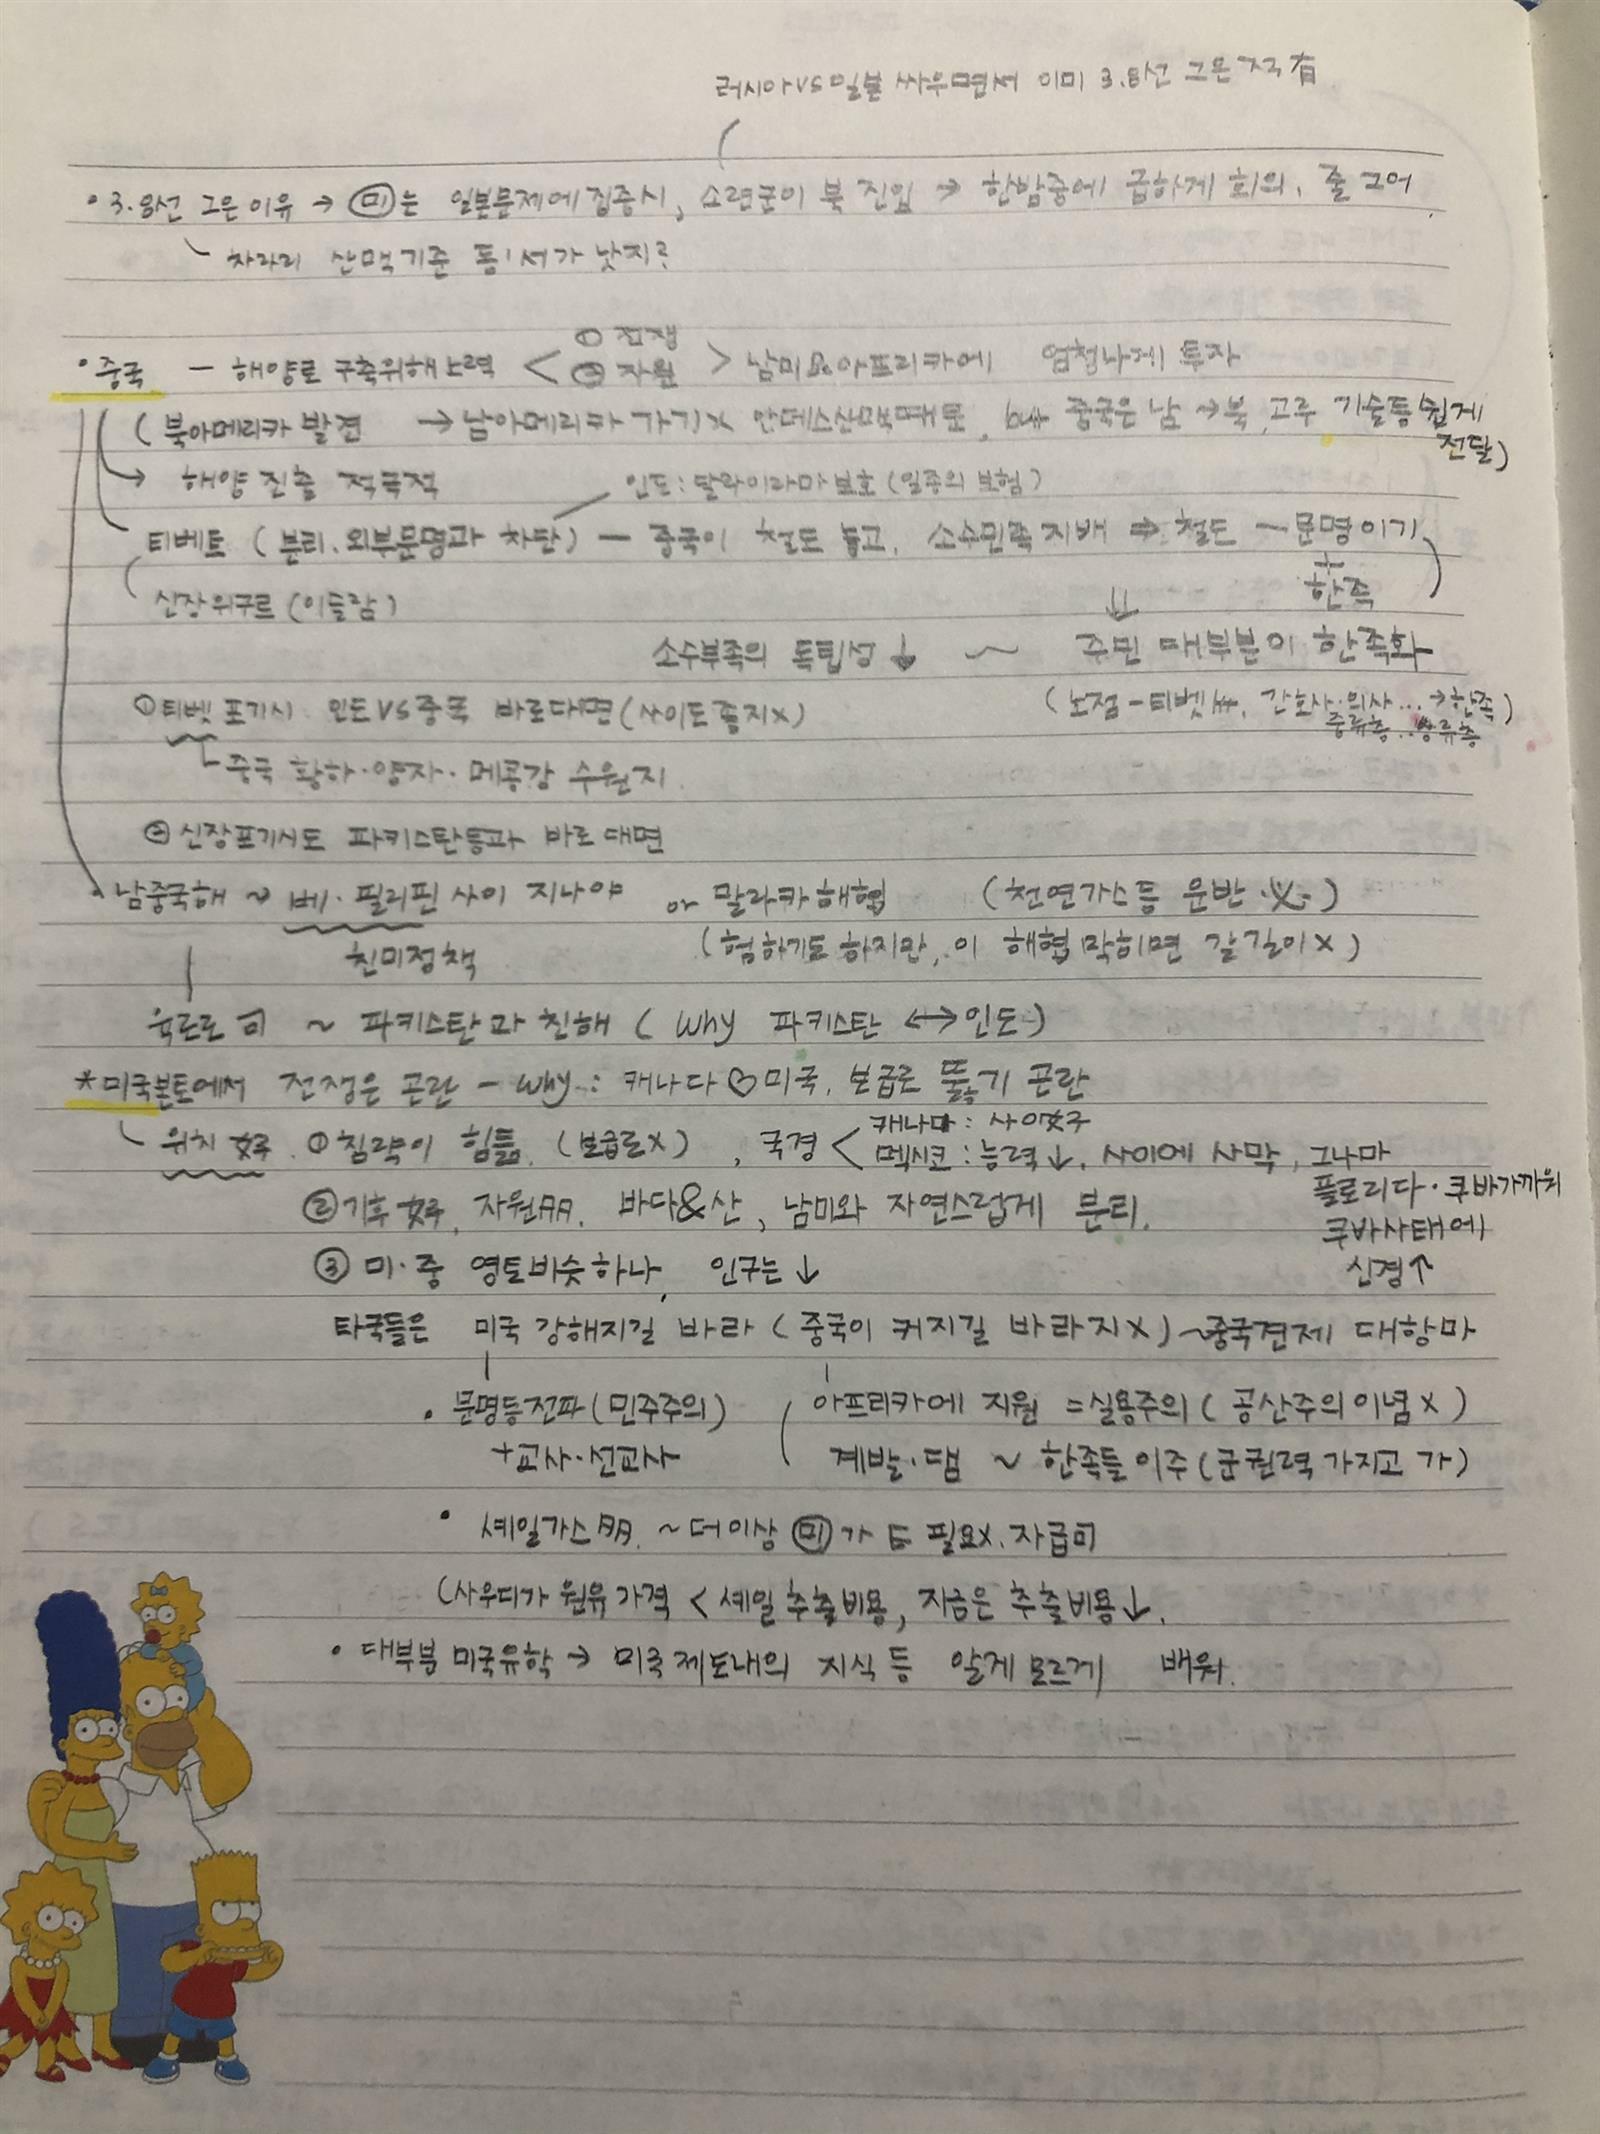 러시아vs일본 싸우면서 이미 3.8선 그은 적 有
• 3.8선 그은 이유 → 미는 일본문제에 집중시, 소련군이 북 진입 → 한밤중에 급하게 회의, 줄 그어
차라리 산맥기준 동·서가 낫지?
① 전쟁
• 중국 - 해양로 구축위해 노력 < > 남미&아프리카에 엄청나게 투자
② 자원
(북아메리카 발견 → 남아메리카 가기x 안데스산맥때문, but 중국은 남→북, 고루 기술등 쉽게
전달)
→ 해양 진출 적극적
인도: 달라이라마 보호 (일종의 보험)
티베트 (분리, 외부문명과 차단) - 중국이 철도 놓고, 소수민족 지배 ⇒ 철도 - 문명이기
+
신장위구르 (이슬람)
한족
⇓
소수부족의 독립성↓ ~ 주민 대부분이 한족화
① 티벳 포기시 인도vs중국 바로대면 (사이도 좋지x)
(노점-티벳人, 간호사·의사... →한족)
중류층..상류층
중국 황하·양자·메콩강 수원지.
② 신장포기시도 파키스탄등과 바로 대면
• 남중국해 ~ 베·필리핀 사이 지나야 or 말라카해협 (천연가스등 운반·必·)
친미정책
(험하기도 하지만, 이 해협 막히면 갈길이x)
육로로 可 ~ 파키스탄과 친해 (why 파키스탄 ↔ 인도)
* 미국본토에서 전쟁은 곤란 - why: 캐나다♡미국, 보급로 뚫기 곤란
위치 好 ① 침략이 힘듦. (보급로x), 국경 < 캐나다: 사이好
멕시코: 능력↓, 사이에 사막, 그나마
플로리다·쿠바가까워
쿠바사태에
신경↑
② 기후 好, 자원多, 바다&산, 남미와 자연스럽게 분리.
③ 미·중 영토비슷하나, 인구는↓
타국들은 미국 강해지길 바라 (중국이 커지길 바라지x) ~중국견제 대항마
• 문명등전파 (민주주의)
+교사·선교사
아프리카에 지원 =실용주의 (공산주의이념x)
계발·댐 ~ 한족들이주 (군권력 가지고 가)
• 셰일가스多, ~더이상 미가 필요x, 자급可
(사우디가 원유가격 < 셰일 추출비용, 지금은 추출비용↓.
• 대부분 미국유학 → 미국 제도내의 지식 등 알게 모르게 배워.